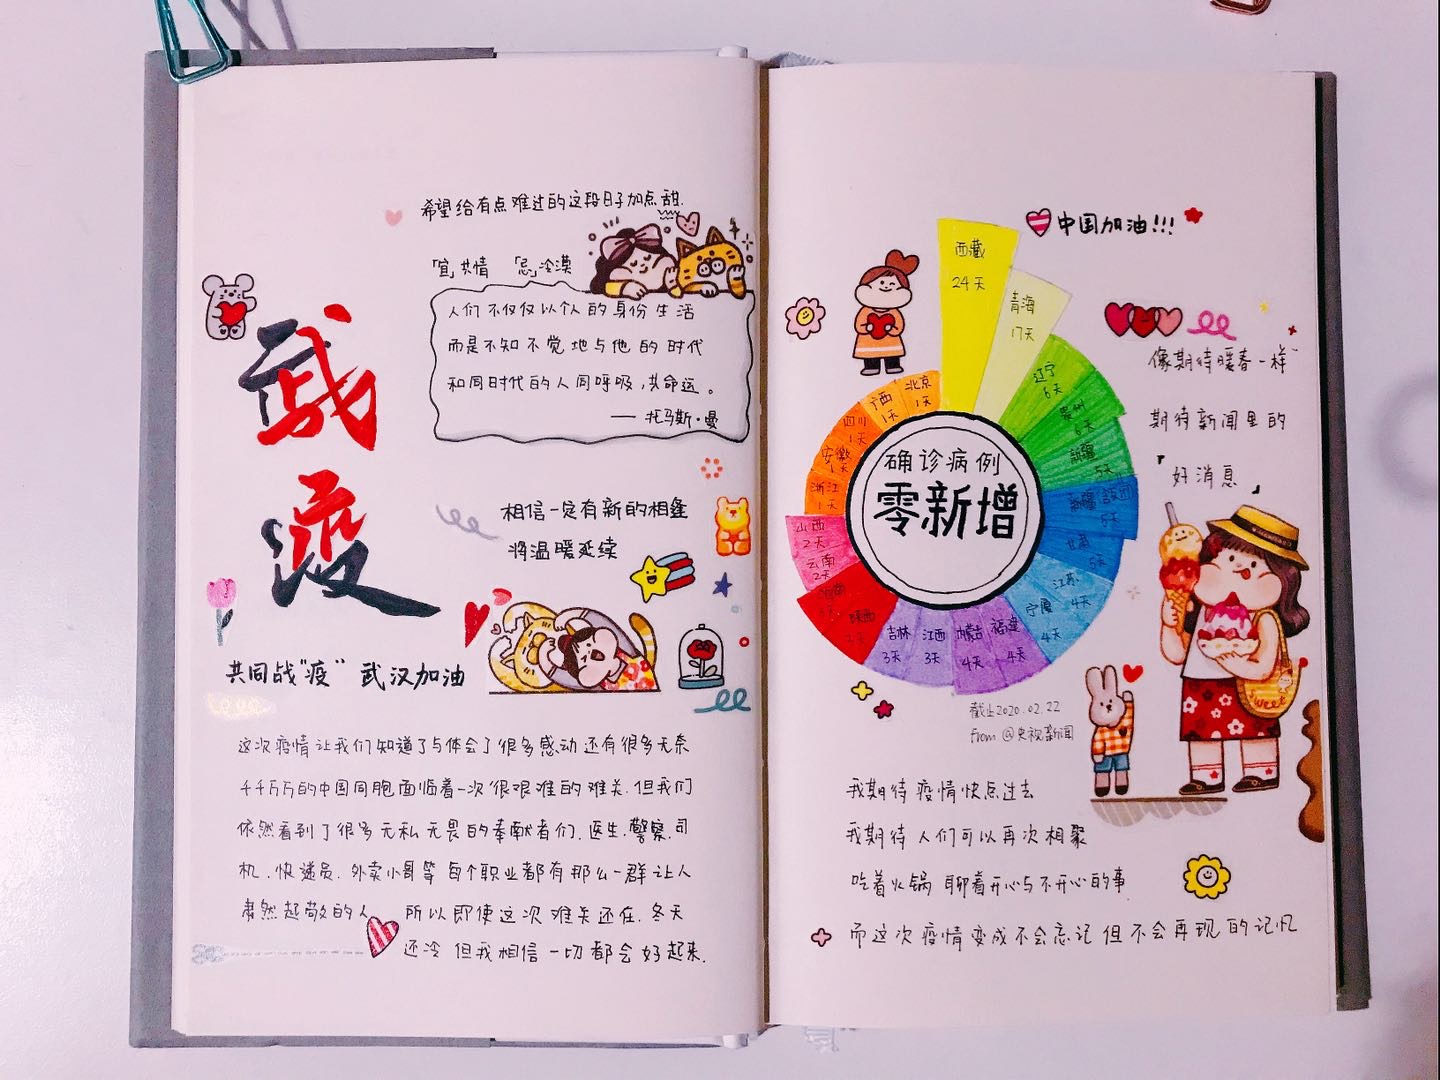 希望给有点难过的这段日子加点甜.
「宜」共情 「忌」冷漠
人们不仅仅以个人的身份生活
而是不知不觉地与他的时代
和同时代的人同呼吸,共命运。
—— 托马斯·曼
战疫
相信一定有新的相逢
将温暖延续
共同战"疫" 武汉加油
这次疫情让我们知道了与体会了很多感动还有很多无奈
千千万万的中国同胞面临着一次很艰难的难关.但我们
依然看到了很多无私无畏的奉献者们.医生.警察.司
机.快递员.外卖小哥等每个职业都有那么一群让人
肃然起敬的人 所以即使这次难关还在.冬天
还冷 但我相信一切都会好起来.
中国加油!!!
西藏
24天
青海
17天
辽宁
6天
贵州
6天
新疆
5天
新疆兵团
5天
甘肃
5天
江苏
4天
宁夏
4天
福建
4天
内蒙古
4天
江西
3天
吉林
3天
陕西
河南
云南
2天
山西
2天
浙江
1天
安徽
四川
1天
广西
1天
北京
1天
确诊病例
零新增
截止2020.02.22
from @央视新闻
像期待暖春一样
期待新闻里的
「好消息」
sweet
我期待疫情快点过去
我期待人们可以再次相聚
吃着火锅 聊着开心与不开心的事
而这次疫情变成不会忘记但不会再现的记忆